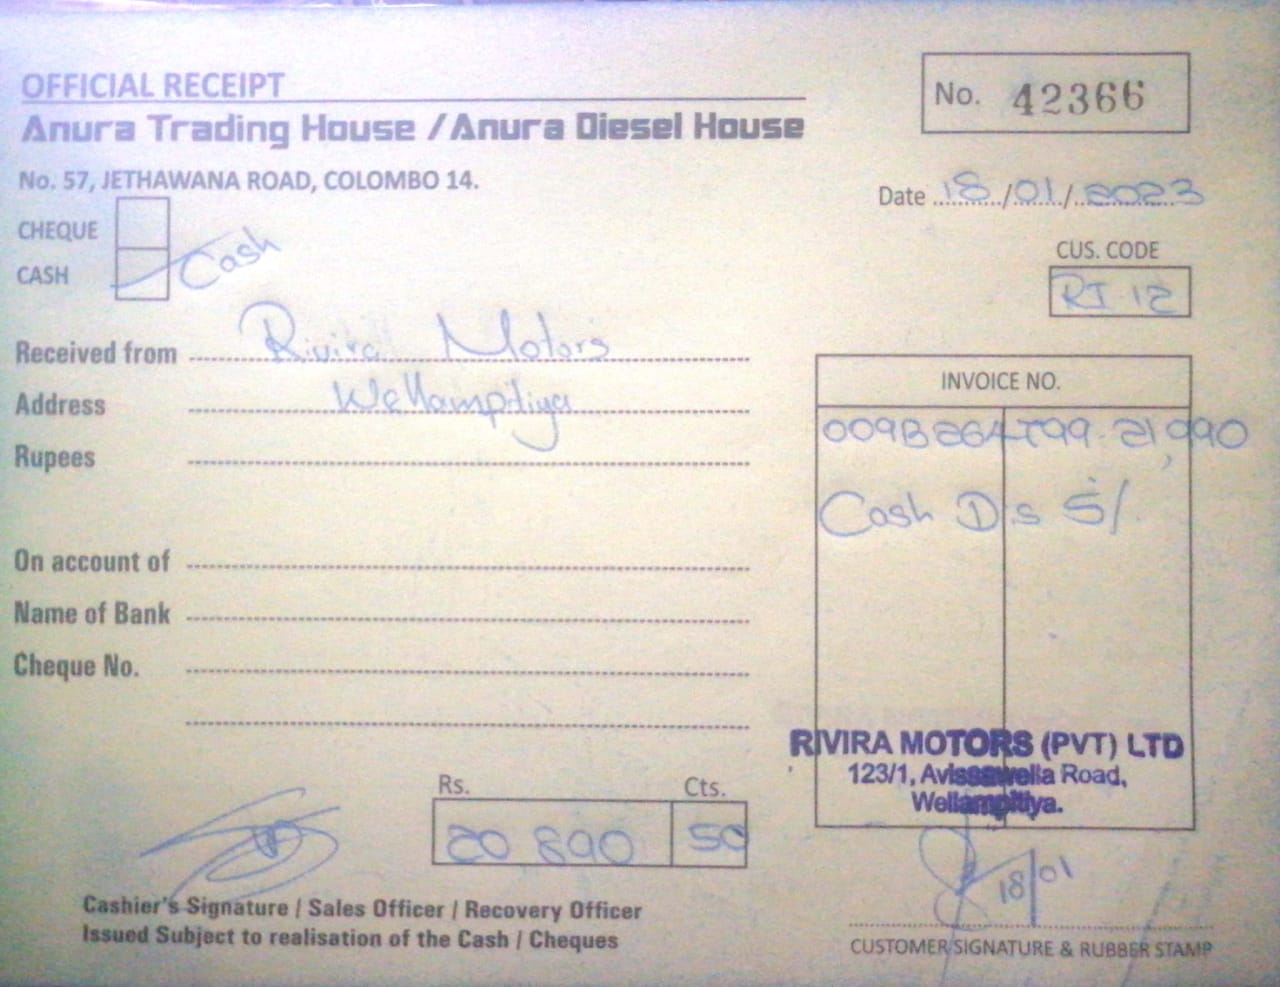 OFFICIAL RECEIPT
Anura Trading House / Anura Diesel House
No. 57, JETHAWANA ROAD, COLOMBO 14.
No. 42366
Date 18/01/2023
CHEQUE
CASH Cash
CUS. CODE
RI 12
Received from Rivira Motors
Address Wellampitiya
Rupees
On account of
Name of Bank
Cheque No.
INVOICE NO.
009B264799 21,990
Cash Dis 5/.
RIVIRA MOTORS (PVT) LTD
123/1, Avissawella Road,
Wellampitiya.
Rs. Cts.
20 890 50
Cashier's Signature / Sales Officer / Recovery Officer
Issued Subject to realisation of the Cash / Cheques
18/01
CUSTOMER SIGNATURE & RUBBER STAMP